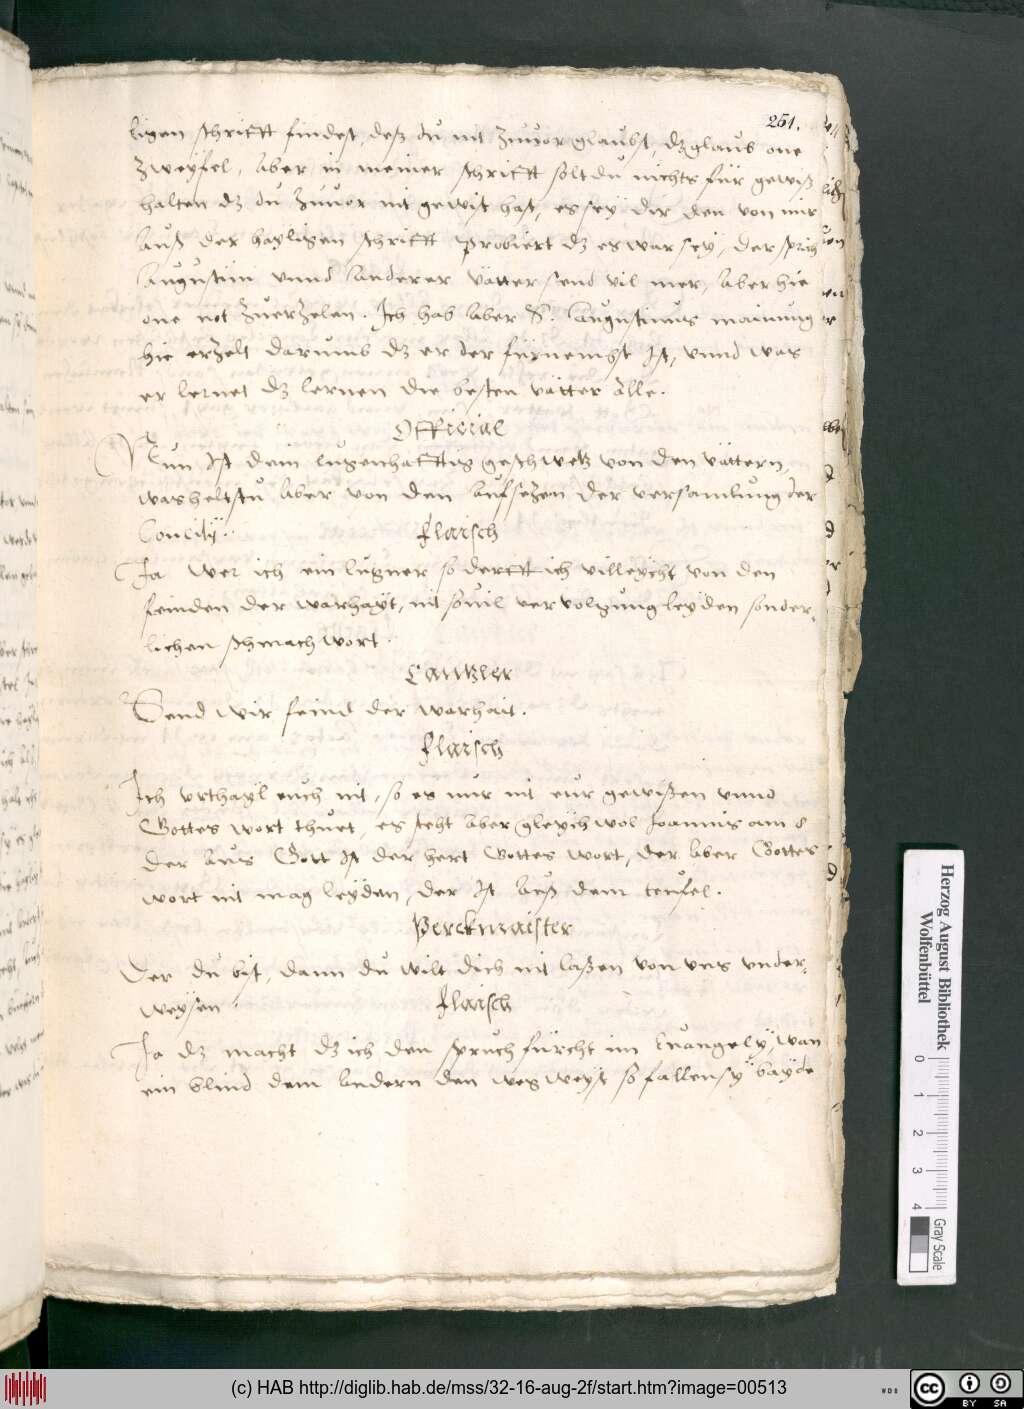 251.
ligen schrifft findest, deß du nit zuuor glaubst, dz glaub one
zweyfel, Aber in meiner schrifft solt du nichts für gewiß
halten dz du zuuor nit gewist hast, es sey dir den von mir
auß der hayligen schrifft probiert dz es war sey, der sprich
Augustini vnnd anderer vätter send vil mer, Aber hie
one not zuerzelen. Ich hab aber S. Augustinus mainung
hie erzelt darumb dz er der fürnemgst ist, vnnd was
er lernet dz lernen die besten vätter alle.
Official
Nun ist dein lugenhafftig geschwetz von den vättern,
was heltstu aber von den aufsezen der versamlung der
Concily.
Flaisch
Ja wer ich ein lugner so derfft ich villeycht von den
feinden der warhayt, nit souil vervolgung leyden sonder,
lichen schmachwort.
Cantzler
Send wir feind der warhait.
Flaisch
Ich vrthayl euch nit, so es nur nit eur gewißen vnnd
Gottes wort thuet, es steht aber gleych wol Joannis am 8
der aus Gott ist der hert Gottes wort, der aber Gottes
wort nit mag leyden, der ist auß dem teufel.
Perckmaister
Der du bist, dann du wilt dich nit laßen von vns vnder,
weysen
Flaisch
Ja dz macht dz ich den spruch fürcht im Euangely, wan
ein blind dem andern den weg weyst so fallen sy bayde
Herzog August Bibliothek
Wolfenbüttel
0 1 2 3 4
Gray Scale
(c) HAB http://diglib.hab.de/mss/32-16-aug-2f/start.htm?image=00513
WDB
cc BY SA